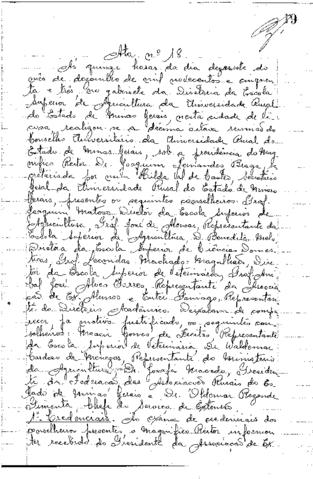 19
Ata nº 18
Às quinze horas do dia dezessete do
mês de dezembro de mil novecentos e cinquen-
ta e três no gabinete da Diretoria da Escola
Superior de Agricultura da Universidade Rural
do Estado de Minas Gerais, nesta cidade de Vi-
çosa realizou-se a décima oitava reunião do
Conselho Universitário da Universidade Rural do
Estado de Minas Gerais, sob a presidência do Mag-
nífico Reitor Dr. Joaquim Fernandes Braga, se-
cretariada por mim de Castro, Secretária
Geral da Universidade Rural do Estado de Minas
Gerais, presentes os seguintes conselheiros: Prof.
Joaquim Matoso, Diretor da Escola Superior de
Agricultura, Prof. José de Alencar, Representante da
Escola Superior de Agricultura, D. Benedita Melo,
Diretora da Escola Superior de Ciências Domés-
ticas, Prof. Leonidas Machado Magalhães, Dire-
tor da Escola Superior de Veterinária, Prof. Aní-
bal José Alves Torres Representante da Associa-
ção de Ex-Alunos e Representan-
te do Diretório Acadêmico. Deixaram de compa-
recer, por motivo justificado, os seguintes con-
selheiros: Moacir Gomes de Freitas, Representante
da Escola Superior de Veterinária, Dr. Waldemar
Cardoso de Menezes, Representante do Ministério
da Agricultura, Dr. Josafá Macedo, Presiden-
te da Federação das Associações Rurais do Es-
tado de Minas Gerais e Dr. Oldemar Rezende
Pimenta, Chefe do Serviço de Extensão.
1º Credenciais. Ao exame de credenciais dos
conselheiros presentes o Magnífico Reitor informou
ter recebido do Presidente da Associação de Ex-